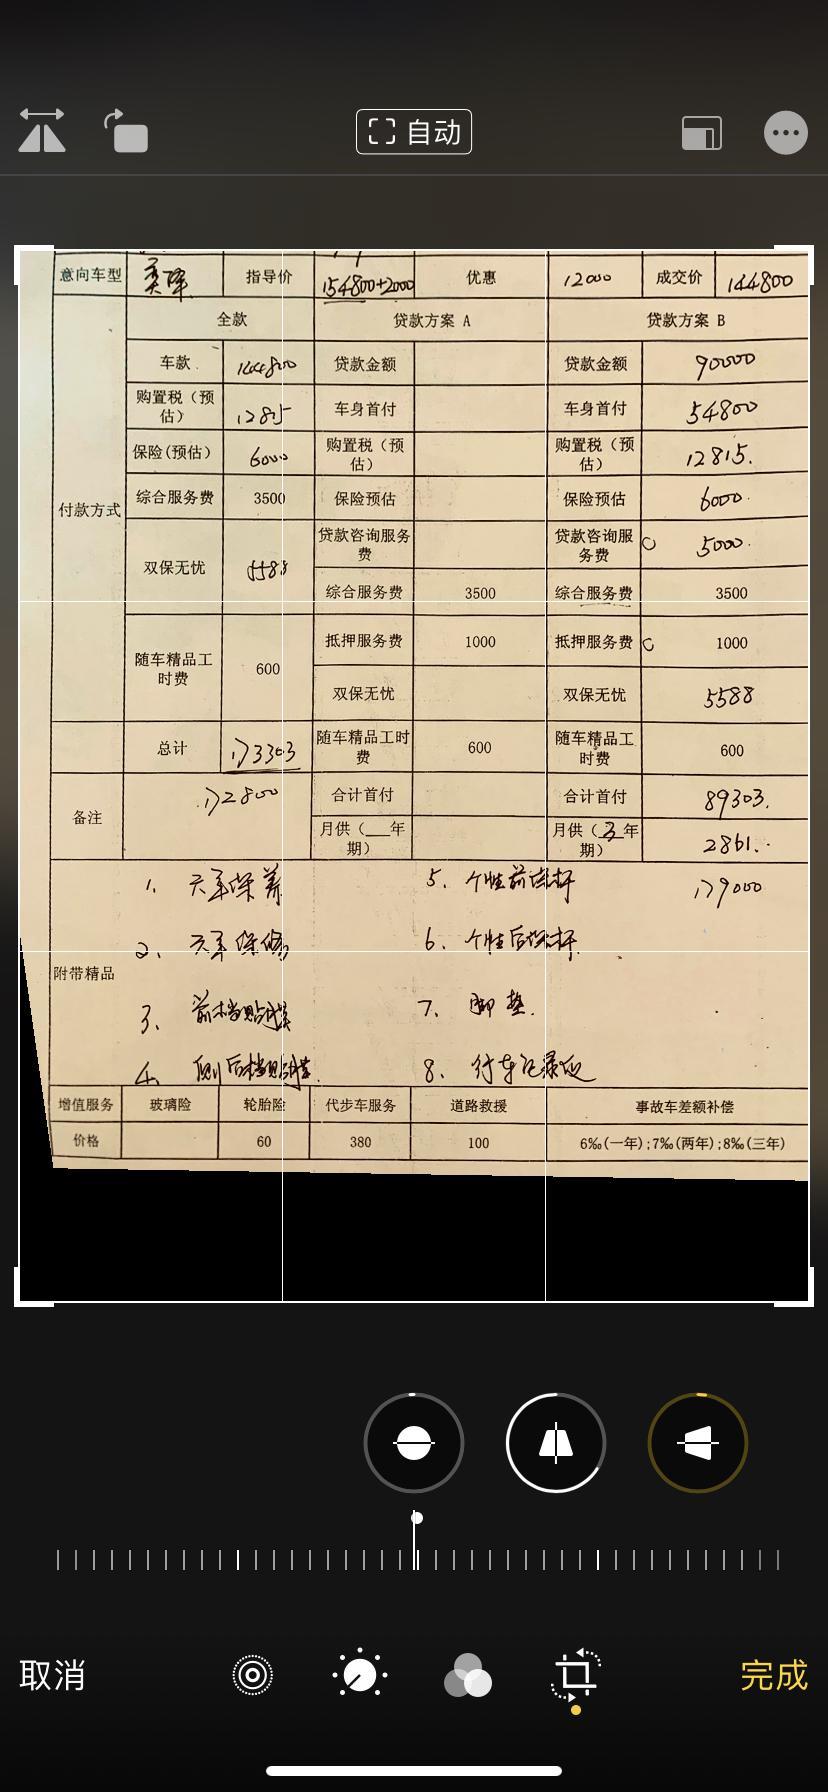 自动
意向车型 指导价 154800+2000 优惠 12000 成交价 144800
全款 贷款方案 A 贷款方案 B
付款方式
车款 144800 贷款金额 贷款金额 90000
购置税（预估） 12815 车身首付 车身首付 54800
保险(预估) 6000 购置税（预估） 购置税（预估） 12815.
综合服务费 3500 保险预估 保险预估 6000.
双保无忧 5588 贷款咨询服务费 贷款咨询服务费 5000.
综合服务费 3500 综合服务费 3500
随车精品工时费 600 抵押服务费 1000 抵押服务费 1000
双保无忧 双保无忧 5588
总计 173303 随车精品工时费 600 随车精品工时费 600
备注 172800 合计首付 合计首付 89303.
月供（__年期） 月供（3年期） 2861..
179000
附带精品
1. 六年保养 5. 个性前保杆
2. 六年保修 6. 个性后保杆
3. 前档贴膜 7. 脚垫.
4. 侧后档贴膜. 8. 行车记录仪
增值服务 玻璃险 轮胎险 代步车服务 道路救援 事故车差额补偿
价格 60 380 100 6‰(一年);7‰(两年);8‰(三年)
取消 完成